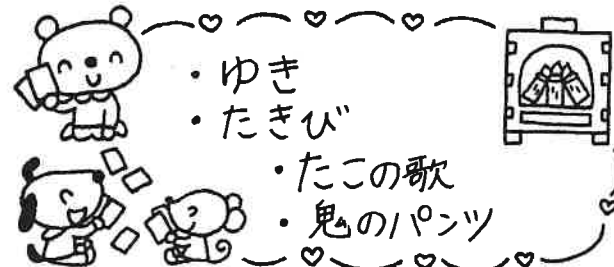 ・ゆき
・たきび
・たこの歌
・鬼のパンツ